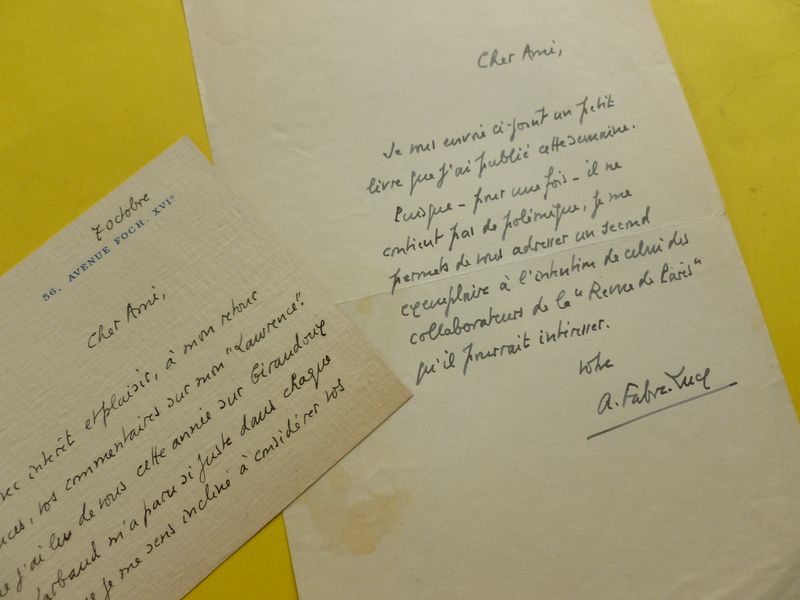 7 octobre
56, AVENUE FOCH. XVIᵉ
Cher Ami,
intérêt et plaisir, à mon retour
vos commentaires sur mon "Lawrence".
j'ai lu de vous cette année sur Giraudoux
m'a paru si juste dans chaque
je me sens incliné à considérer vos
Cher Ami,
Je vous envoie ci-joint un petit
livre que j'ai publié cette semaine.
Puisque - pour une fois - il ne
contient pas de polémique, je me
permets de vous adresser un second
exemplaire à l'intention de celui des
collaborateurs de la "Revue de Paris"
qu'il pourrait intéresser.
votre
A. Fabre-Luce